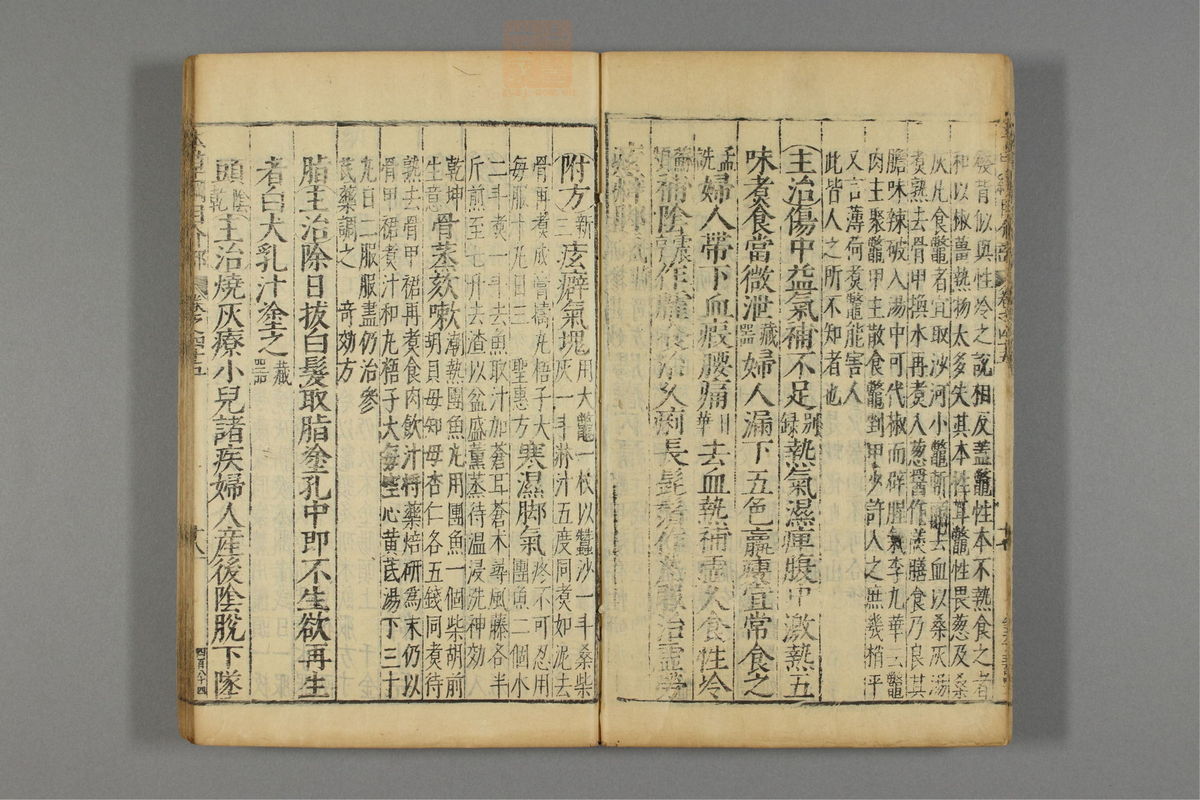 發背似與性冷之說相反蓋鼈性本不熱食之者
和以椒薑熱物太多失其本性耳鼈性畏葱及桑
灰凡食鼈者宜取沙河小鼈斬頭去血以桑灰湯
煮熟去骨甲換水再煮入葱醬作羹膳食乃良其
膽味辣破入湯中可代椒而辟腥氣李九華云鼈
肉主聚鼈甲主散食鼈剉甲少許入之庶幾稍平
又言薄荷煮鼈能害人
此皆人之所不知者也
主治傷中益氣補不足别録熱氣濕痺腹中激熱五
味煮食當微泄藏器婦人漏下五色羸瘦宜常食之
孟詵婦人帶下血瘕腰痛日華去血熱補虛久食性冷
蘇頌補陰震亨作臛食治久痢長髭鬚作丸服治虛勞
痃癖脚氣時珍
附方新三痃癖氣塊用大鼈一枚以蠶沙一斗桑柴
灰一斗淋汁五度同煮如泥去
骨再煮成膏擣丸梧子大
每服十丸日三聖惠方寒濕脚氣疼不可忍用
團魚二個水
二斗煮一斗去魚取汁加蒼耳蒼木尋風藤各半
斤煎至七升去渣以盆盛薰蒸待温浸洗神効
乾坤
生意骨蒸欬嗽潮熱團魚丸用團魚一個柴胡前
胡貝母知母杏仁各五錢同煮待
熟去骨甲裙再煮食肉飲汁將藥焙研為末仍以
骨甲裙煮汁和丸梧子大每空心黄芪湯下三十
丸日二服服盡仍治參
芪藥調之奇効方
脂主治除日拔白髮取脂塗孔中即不生欲再生
者白犬乳汁塗之藏器
頭陰乾主治燒灰療小兒諸疾婦人産後陰脫下墜
四百八十四